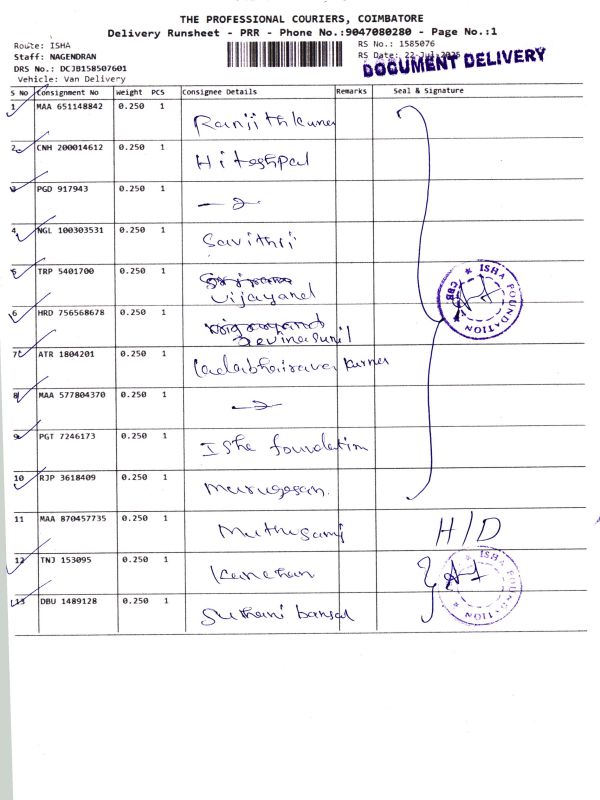 THE PROFESSIONAL COURIERS, COIMBATORE
Delivery Runsheet - PRR - Phone No.:9047080280 - Page No.:1
Route: ISHA
RS No.: 1585076
Staff: NAGENDRAN
RS Date: 22-Jul-2025
DRS No.: DCJB158507601
DOCUMENT DELIVERY
Vehicle: Van Delivery
S No Consignment No Weight PCS Consignee Details Remarks Seal & Signature
1 MAA 651148842 0.250 1 Ranjithkumar
2 CNH 200014612 0.250 1 Hiteshpal
3 PGD 917943 0.250 1
4 NGL 100303531 0.250 1 Savithri
5 TRP 5401700 0.250 1
Vijayanel
6 HRD 756568678 0.250 1
7 ATR 1804201 0.250 1
8 MAA 577804370 0.250 1
9 PGT 7246173 0.250 1 Isha foundation
10 RJP 3618409 0.250 1 Murugesan.
11 MAA 870457735 0.250 1 Muthusami H/D
12 TNJ 153095 0.250 1 Kanchan
13 DBU 1489128 0.250 1 bansal
ISHA FOUNDATION
CBE
ISHA FOUNDATION